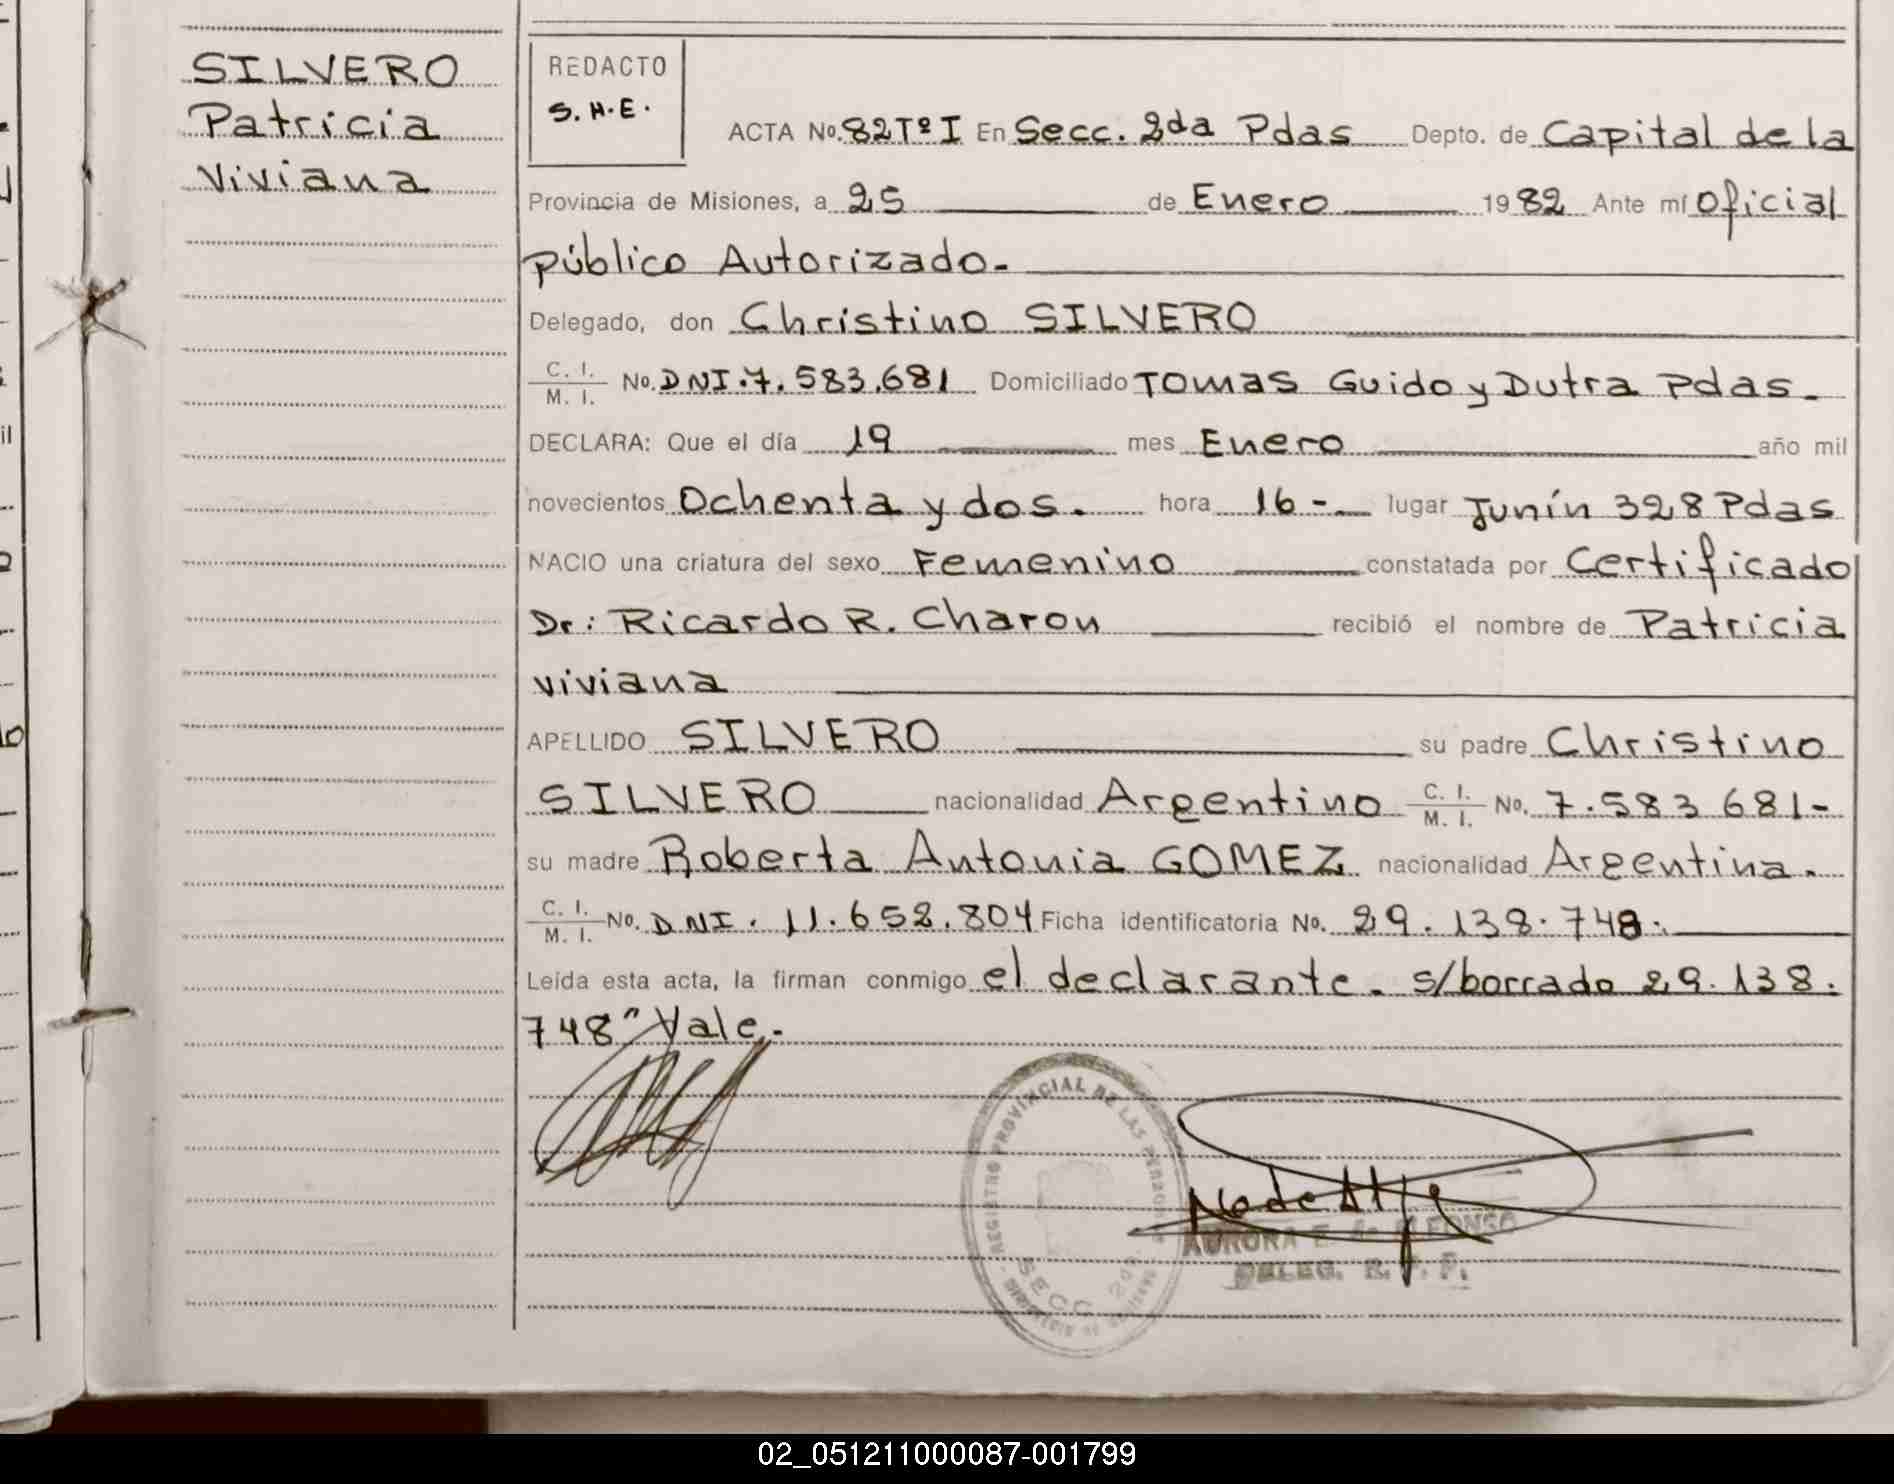 SILVERO
Patricia
Viviana
REDACTO
S.H.E.
ACTA No. 82TºI En Secc. 2da Pdas Depto. de Capital de la
Provincia de Misiones, a 25 de Enero 1982 Ante mí Oficial
público Autorizado.-
Delegado, don Christino SILVERO
C. I. / M. I. No. DNI.7.583.681 Domiciliado Tomas Guido y Dutra Pdas.-
DECLARA: Que el día 19 mes Enero año mil
novecientos Ochenta y dos. hora 16- lugar Junín 328 Pdas
NACIO una criatura del sexo Femenino constatada por Certificado
Dr: Ricardo R. Charon recibió el nombre de Patricia
viviana
APELLIDO SILVERO su padre Christino
SILVERO nacionalidad Argentino C. I. / M. I. No. 7.583 681-
su madre Roberta Antonia GOMEZ nacionalidad Argentina.
C. I. / M. I. No. DNI. 11.652.804 Ficha identificatoria No. 29.138.748.
Leída esta acta, la firman conmigo el declarante. s/borrado 29.138.
748" Vale.-
REGISTRO PROVINCIAL DE LAS PERSONAS
SECC 2da.
AURORA E. de ALFONSO
DELEG. R. P. P.
02_051211000087-001799